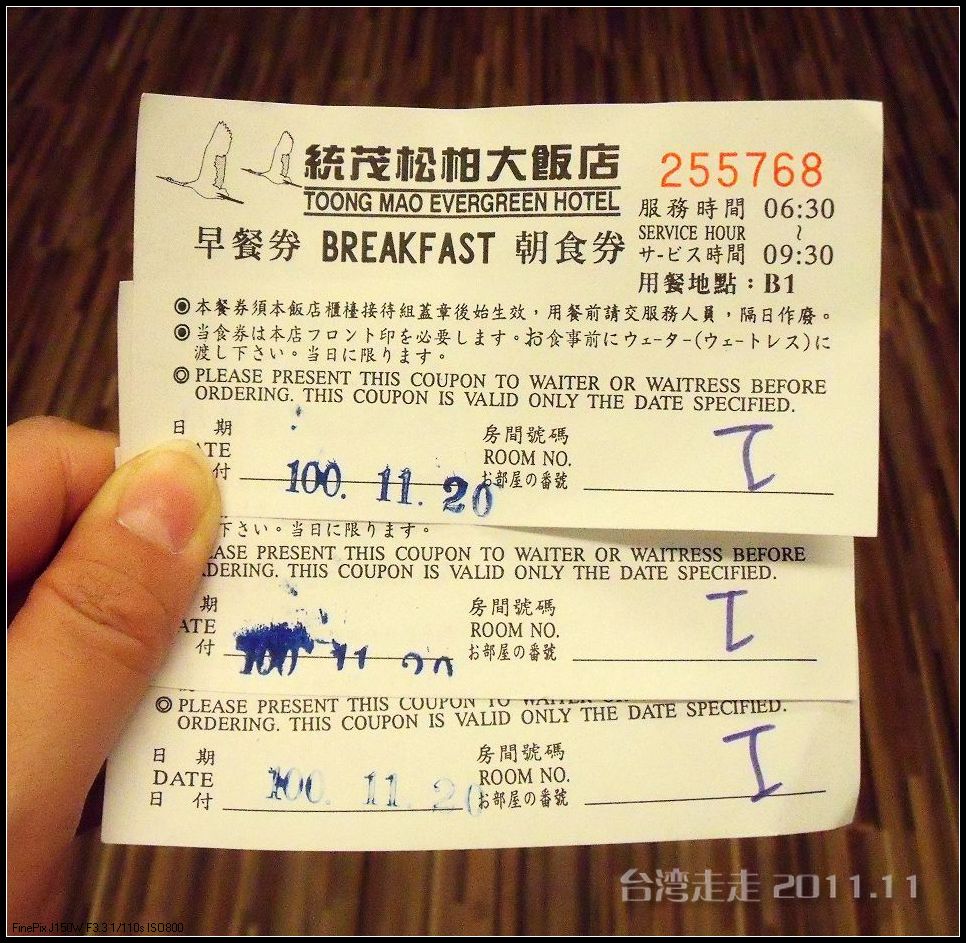 統茂松柏大飯店
TOONG MAO EVERGREEN HOTEL
早餐券 BREAKFAST 朝食券
255768
服務時間 06:30
SERVICE HOUR ~
サービス時間 09:30
用餐地點：B1
◉本餐券須本飯店櫃檯接待組蓋章後始生效，用餐前請交服務人員，隔日作廢。
◉当食券は本店フロント印を必要します。お食事前にウェーター(ウェートレス)に
渡し下さい。当日に限ります。
◎PLEASE PRESENT THIS COUPON TO WAITER OR WAITRESS BEFORE
ORDERING. THIS COUPON IS VALID ONLY THE DATE SPECIFIED.
日 期
ATE
付
100. 11. 20
房間號碼
ROOM NO.
お部屋の番號
下さい。当日に限ります。
EASE PRESENT THIS COUPON TO WAITER OR WAITRESS BEFORE
DERING. THIS COUPON IS VALID ONLY THE DATE SPECIFIED.
期
ATE
付
100 11 20
房間號碼
ROOM NO.
お部屋の番號
◎PLEASE PRESENT THIS COUPON TO WAITER OR
ORDERING. THIS COUPON IS VALID ONLY THE DATE SPECIFIED.
日 期
DATE
日 付
100. 11. 20
房間號碼
ROOM NO.
お部屋の番號
台湾走走 2011.11
FinePix J150W F3.3 1/110s ISO800